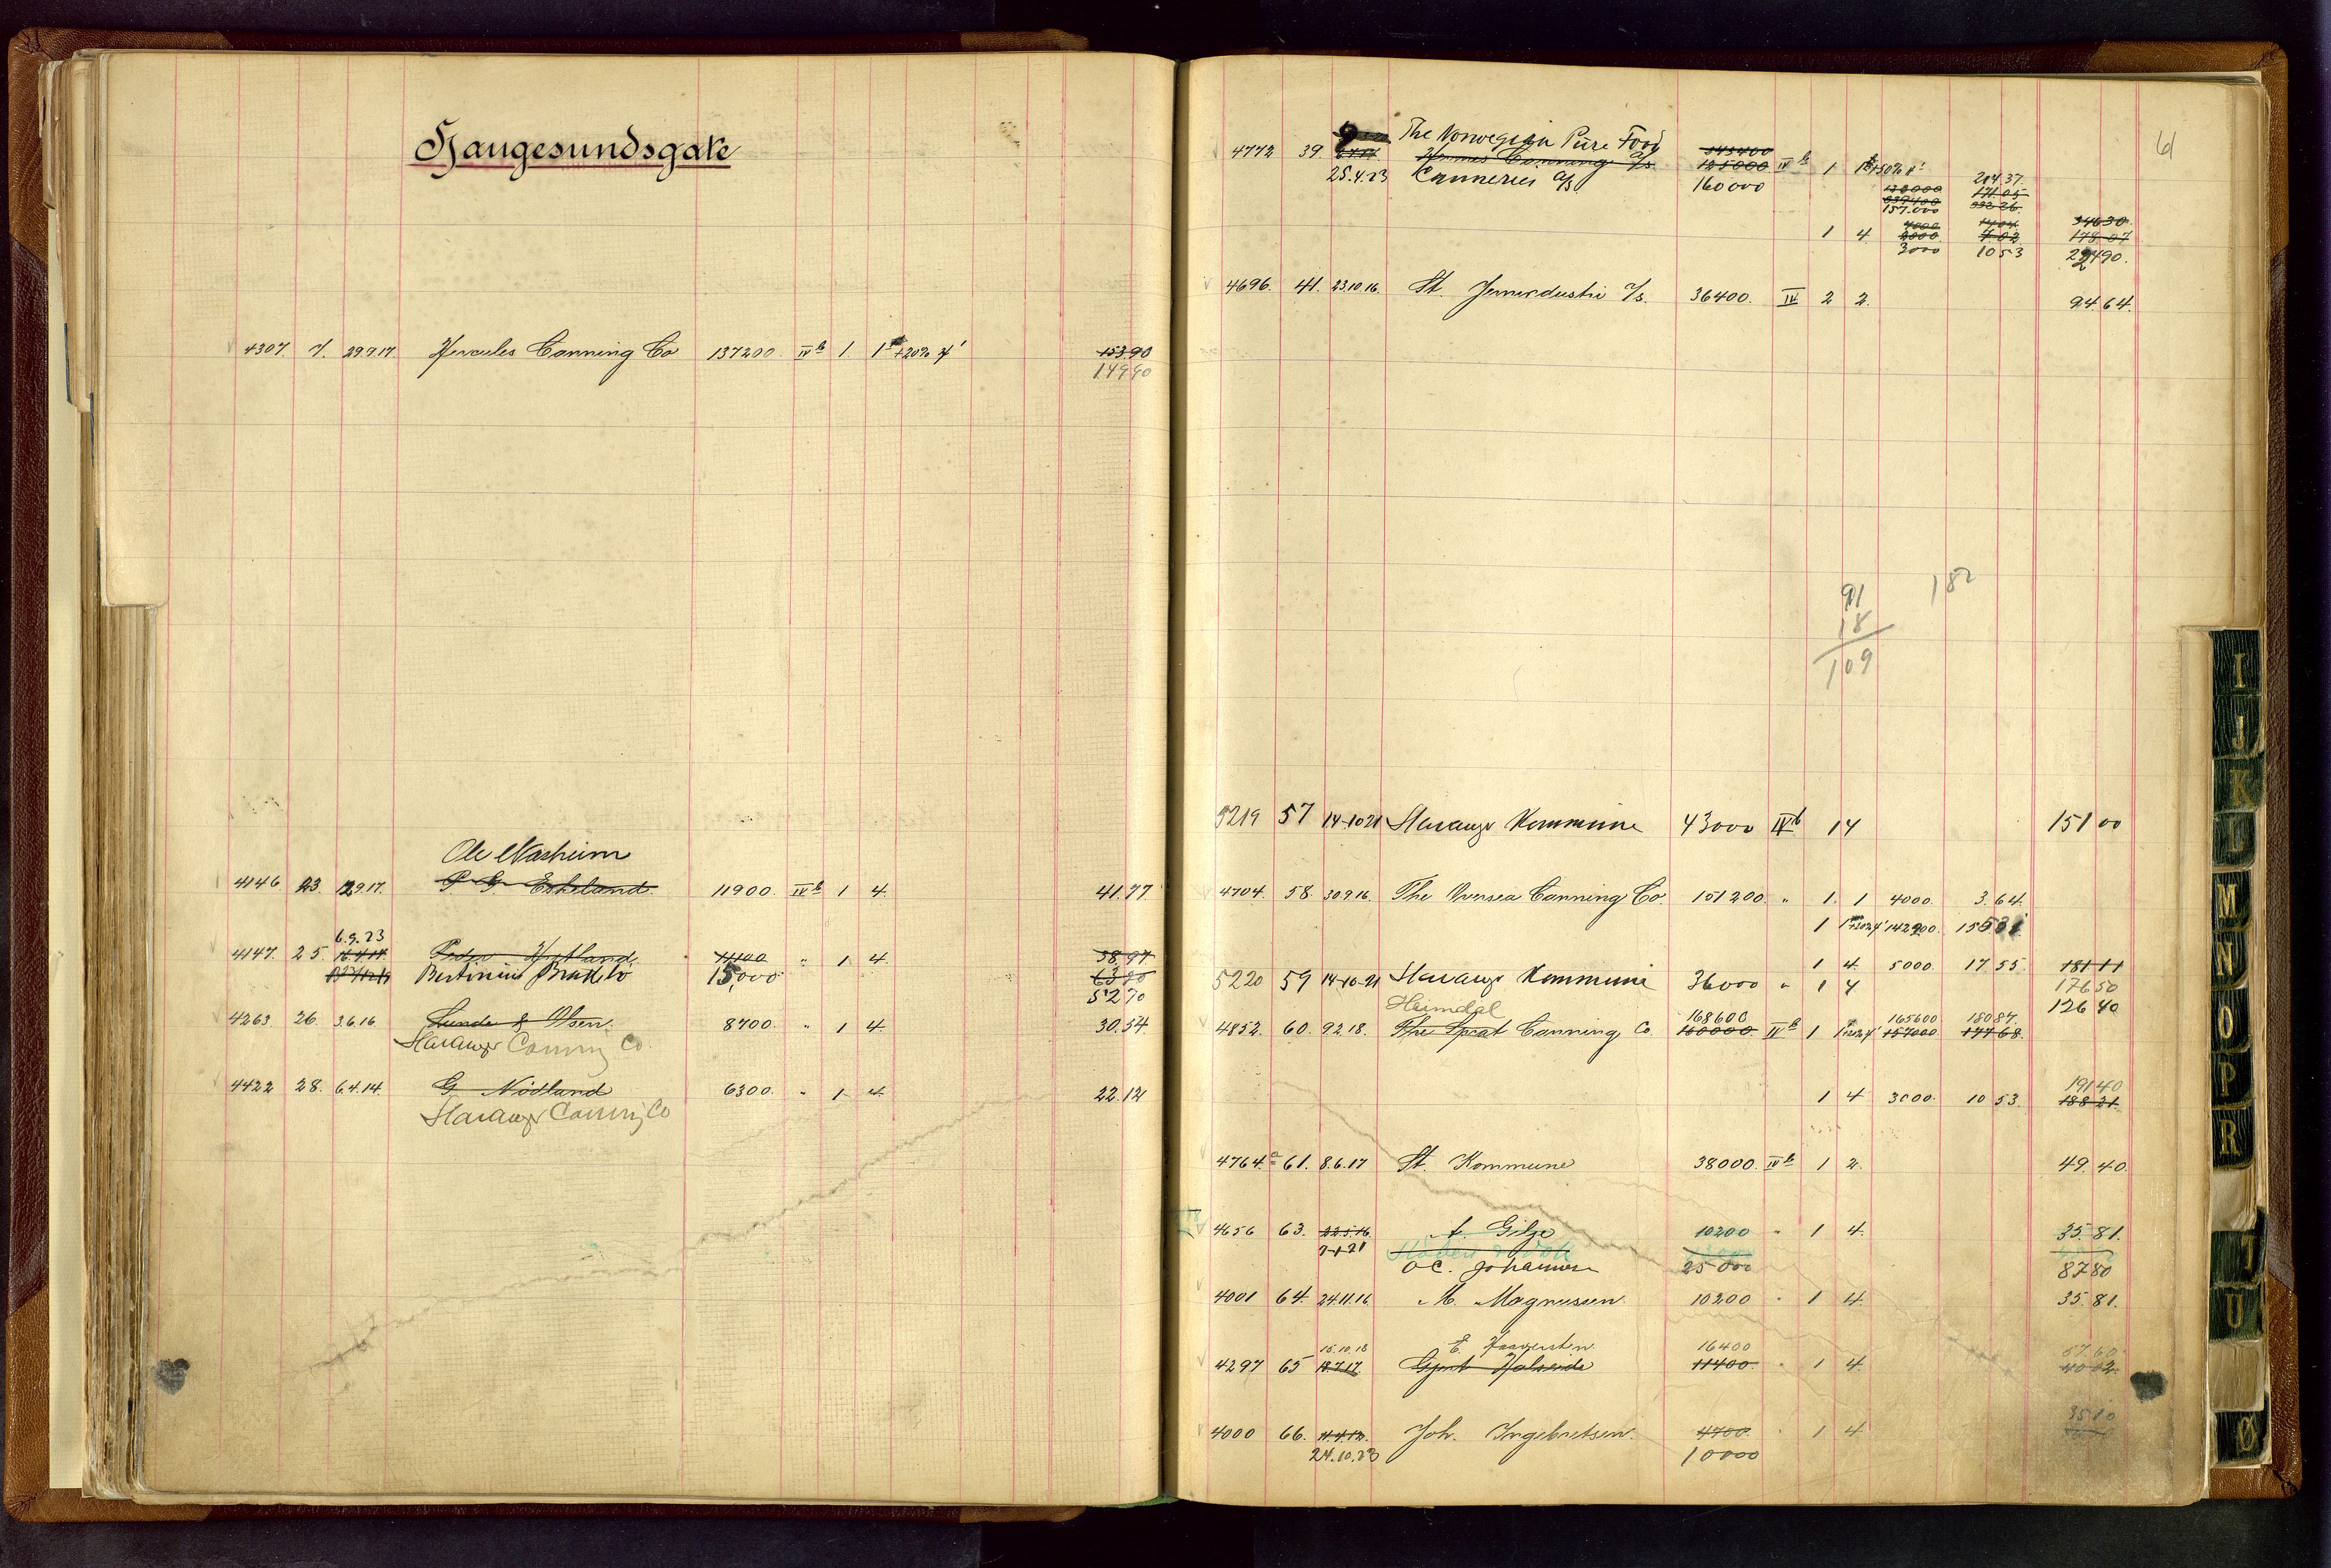 Haugesundsgate
4307. 7. 29.9.17. Hercules Canning Co 137200. IVb 1. 1 +20% 4' 153.90
149 90
Ole Nasheim
4146. 23. 12.9.17. P. G. Eskeland. 11900. IVb 1 4. 41.77
6.9.23
4147. 25. Peder Hytland. 11100 " 1 4. 38.97
Bertinius 15,000 63 80
52 70
4263. 26. 3.6.16 Lunde & Olsen. 8700. " 1 4. 30.54.
Stavanger Canning Co.
4422 28. 6.4.14. G. Nödland 6300. " 1 4. 22.12
Stavanger Canning Co
61
The Norwegian Pure Food 343400
4772 39. Hermes Canning A/s. 125000 IVb 1 1 +50% 4'
25.4.23 Canneries A/S 160000 214.37.
120000 171.05
339400 332.26.
157.000
4000 14.04 346 30.
1 4. 2000 7.02 178 07
3000 10 53 224 90.
4696. 41. 23.10.16. St. Jernindustri A/s. 36400. IV 2 2. 94.64.
91 182
18
109
5219 57 14-10-21 Stavanger Kommune 43000 IVb 1 4 151 00
4704. 58. 30.9.16. The Oversea Canning Co. 151200. " 1. 1 4000. 3.64.
1 1 +20% 4' 142200.
1 4. 5000. 17 55. 181 11
5220 59 14-10-21 Stavanger Kommune 36000 " 1 4 176 50
126 40
Heimdal 168600 165600. 180 87.
4852. 60. 9.2.18. The Sprat Canning Co 160000. IVb 1 157000. 177 68.
191 40
1 4 3000. 10 53. 188 21.
4764.a 61. 8.6.17 St. Kommune 38000. IVb 1 2. 49.40.
4656 63. 22.5.16. A. Gilje 10200 " 1 4. 35.81.
O. C. Johannesen 25000 87 80
4001 64. 24.11.16. M. Magnussen. 10200 " 1 4. 35.81.
15.10.18 E. 16400 57.60
4297 65 18.7.17. Gjert Halseide 11400. " 1 4. 40 02.
35 10
4000 66. Joh. Ingebretsen. 4700. " 1 4.
24.10.23 10000
I
J
K
L
M
N
O
P
R
T
U
Ø